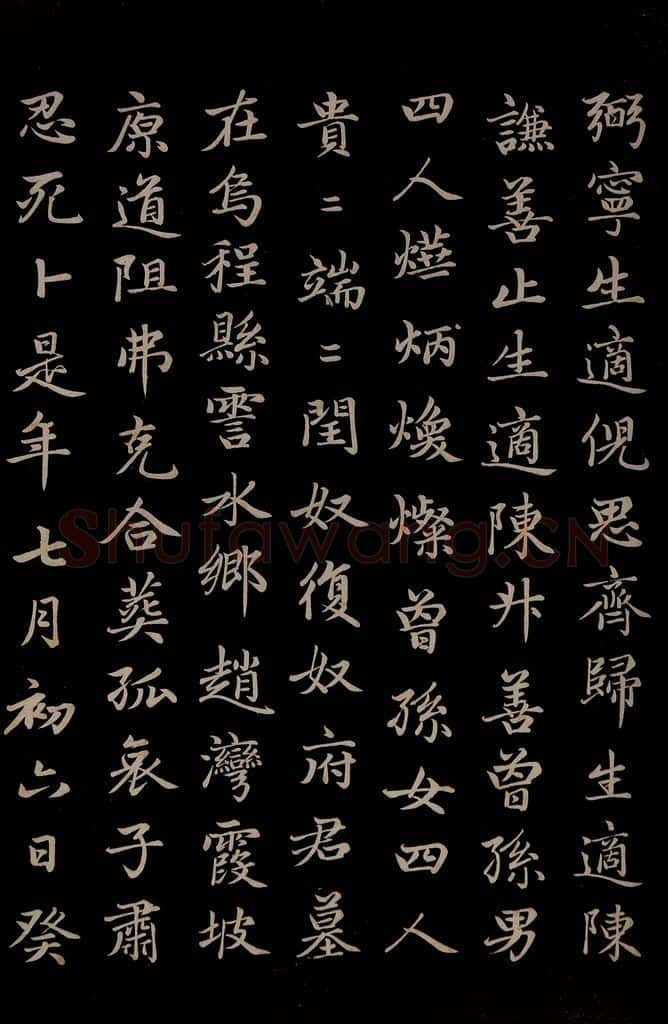 弼寧生適倪思齊歸生適陳
謙善止生適陳廾善曾孫男
四人爀炳煥燦曾孫女四人
貴〻端〻閏奴復奴府君墓
在烏程縣霅水鄉趙灣霞坡
原道阻弗克合葬孤哀子肅
忍死卜是年七月初六日癸
Shufawang.CN